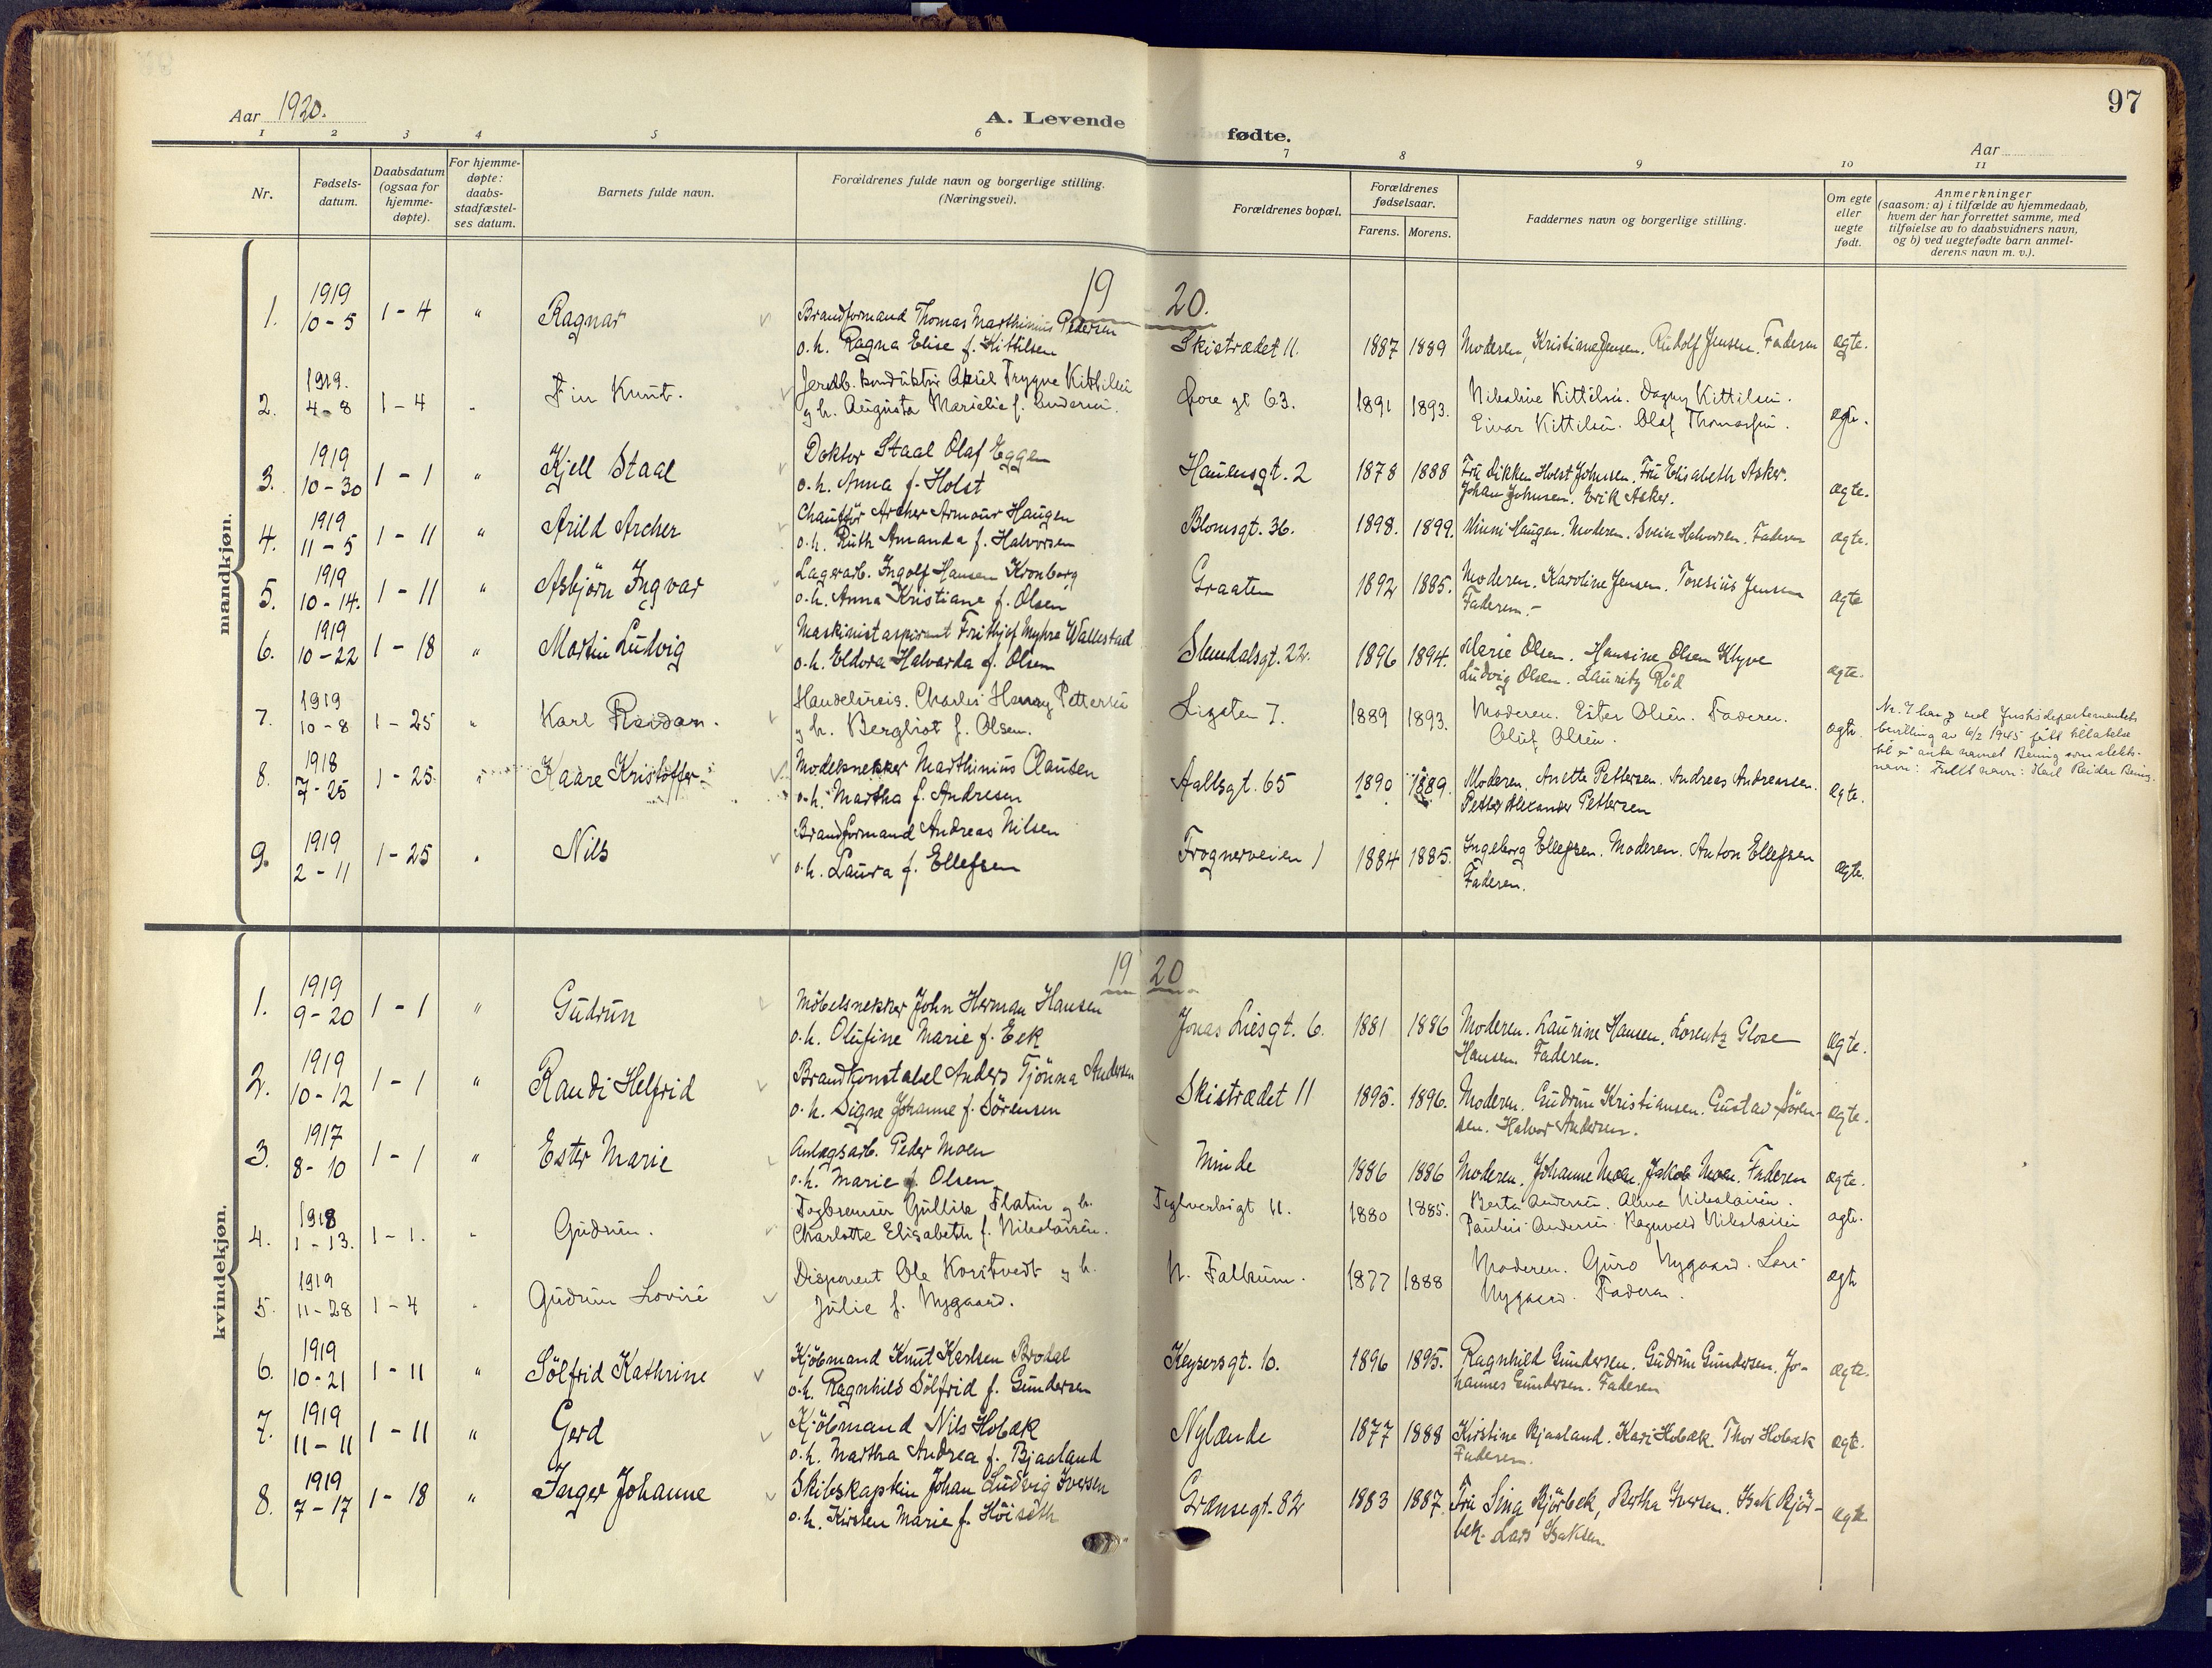 97
Aar 1920.
A. Levende fødte.
Aar
1 2 3 4 5 6 7 8 9 10 11
Nr.
Fødsels-
datum.
Daabsdatum
(ogsaa for
hjemme-
døpte).
For hjemme-
døpte:
daabs-
stadfæstel-
ses datum.
Barnets fulde navn.
Forældrenes fulde navn og borgerlige stilling.
(Næringsvei).
Forældrenes bopæl.
Forældrenes
fødselsaar.
Farens. Morens.
Faddernes navn og borgerlige stilling.
Om egte
eller
uegte
født.
Anmerkninger
(saasom: a) i tilfælde av hjemmedaab,
hvem der har forrettet samme, med
tilføielse av to daabsvidners navn,
og b) ved uegtefødte barn anmel-
derens navn m. v.).
mandkjøn.
19 20.
1. 1919 10-5 1-4 " Ragnar Brandformand Thomas Marthinius Pedersen
o. h. Ragna Elise f. Kittilsen Skistrædet 11. 1887 1889 Moderen, Kristiane Jensen. Rudolf Jensen. Faderen ægte.
2. 1919. 4-8 1-4 " Fin Knut. Jernb. konduktør Aksel Trygve Kittilsen
og h. Augusta Marielie f. Andersen. gt 63. 1891 1893. Nikoline Kittilsen. Dagny Kittilsen.
Einar Kittilsen. Olaf Thomassen. ægte.
3. 1919 10-30 1-1 " Kjell Staal Doktor Staal Olaf Eggen
o. h. Anna f. Holst Hauensgt. 2 1878 1888 Fru Dikken Holst Johnsen. Fru Elisabeth Asker.
Johan Johnsen. Erik Asker. ægte.
4. 1919 11-5 1-11 " Arild Archer Chauffør Archer Armour Haugen
o. h. Ruth Amanda f. Halvorsen Blomsgt. 36. 1898. 1899. Minni Haugen. Moderen. Svein Halvorsen. Faderen ægte.
5. 1919 10-14. 1-11 " Asbjörn Ingvar Lagerarb. Ingolf Hansen Kronborg
o. h. Anna Kristiane f. Olsen Graaten 1892 1885. Moderen. Karoline Jensen. Toresius Jensen
Faderen.- ægte
6. 1919 10-22 1-18 " Martin Ludvig Maskinistaspirant Frithjof Myhre Wallestad
o. h. Eldora Halvarda f. Olsen Slemdalsgt. 22. 1896 1894. Marie Olsen. Hansine Olsen Klyve
Ludvig Olsen. Lauritz Rød ægte.
7. 1919 10-8 1-25 " Karl Reidar. Handelsreis. Charles Henry Pettersen
og h. Bergliot f. Olsen. Ligaten 7. 1889 1893. Moderen. Ester Olsen. Faderen.
Oluf Olsen. ægte. Nr. 7 har ved Justisdepartementets
bevilling av 6/2 1945 fått tillatelse
til å anta navnet Bening som slekts-
navn: Fullt navn: Karl Reidar Bening.
8. 1918 7-25 1-25 " Kaare Kristoffer Modelsnekker Marthinius Clausen
o. h. Martha f. Andresen Aallsgt. 65 1890 1889. Moderen. Anette Pettersen. Andreas Andreassen.
Petter Alexander Pettersen ægte.
9. 1919 2-11 1-25 " Nils Brandformand Andreas Nilsen
o. h. Laura f. Ellefsen Frognerveien 1 1884 1885. Ingeborg Ellefsen. Moderen. Anton Ellefsen
Faderen. ægte.
kvindekjøn.
19 20
1. 1919 9-20 1-1 " Gudrun Möbelsnekker John Herman Hansen
o. h. Olufine Marie f. Eek Jonas Liesgt. 6. 1881 1886 Moderen. Laurine Hansen. Lorentz Glose
Hansen. Faderen. ægte.
2. 1919 10-12 1-1 " Randi Helfrid Brandkonstabel Anders Tjönna Andersen
o. h. Signe Johanne f. Sörensen Skistrædet 11 1895. 1896. Moderen. Gudrun Kristiansen. Gustav Sören-
sen. Halvor Andersen. ægte.
3. 1917 8-10 1-1 " Ester Marie Anlægsarb. Peder Moen
o. h. Marie f. Olsen Minde 1886 1886 Moderen. Johanne Moen. Jakob Moen. Faderen ægte.
4. 1918 1-13. 1-1. " Gudrun. Togbremser Gullik Flatin og h.
Charlotte Elisabeth f. Nikolaisen. Teglverksgt 11. 1880 1885. Berta Andersen. Alma Nikolaisen.
Paulus Andersen. Ragnvald Nikolaisen ægte.
5. 1919 11-28 1-4 " Gudrun Lovise Disponent Ole Koritvedt og h.
Julie f. Nygaard. N. Falkum. 1877 1888 Moderen. Guro Nygaard. Lars
Nygaard. Faderen. ægte
6. 1919 10-21 1-11 " Sölfrid Kathrine Kjöbmand Knut Karlsen Brodal
o. h. Ragnhild Sölfrid f. Gundersen Keysersgt. 10. 1896 1895. Ragnhild Gundersen. Gudrun Gundersen. Jo-
hannes Gundersen. Faderen ægte.
7. 1919 11-11 1-11 " Gerd Kjöbmand Nils Hobæk
o. h. Martha Andrea f. Bjaaland Nylænde 1877 1888 Kirstine Bjaaland. Kari Hobæk. Thor Hobæk
Faderen. ægte.
8. 1919 7-17 1-18 " Inger Johanne Skibskaptein Johan Ludvig Iversen
o. h. Kirsten Marie f. Höisæth Grænsegt. 82 1883 1887. Fru Sina Björbek, Bertha Iversen. Isak Björ-
bek. Lars Isaksen. ægte